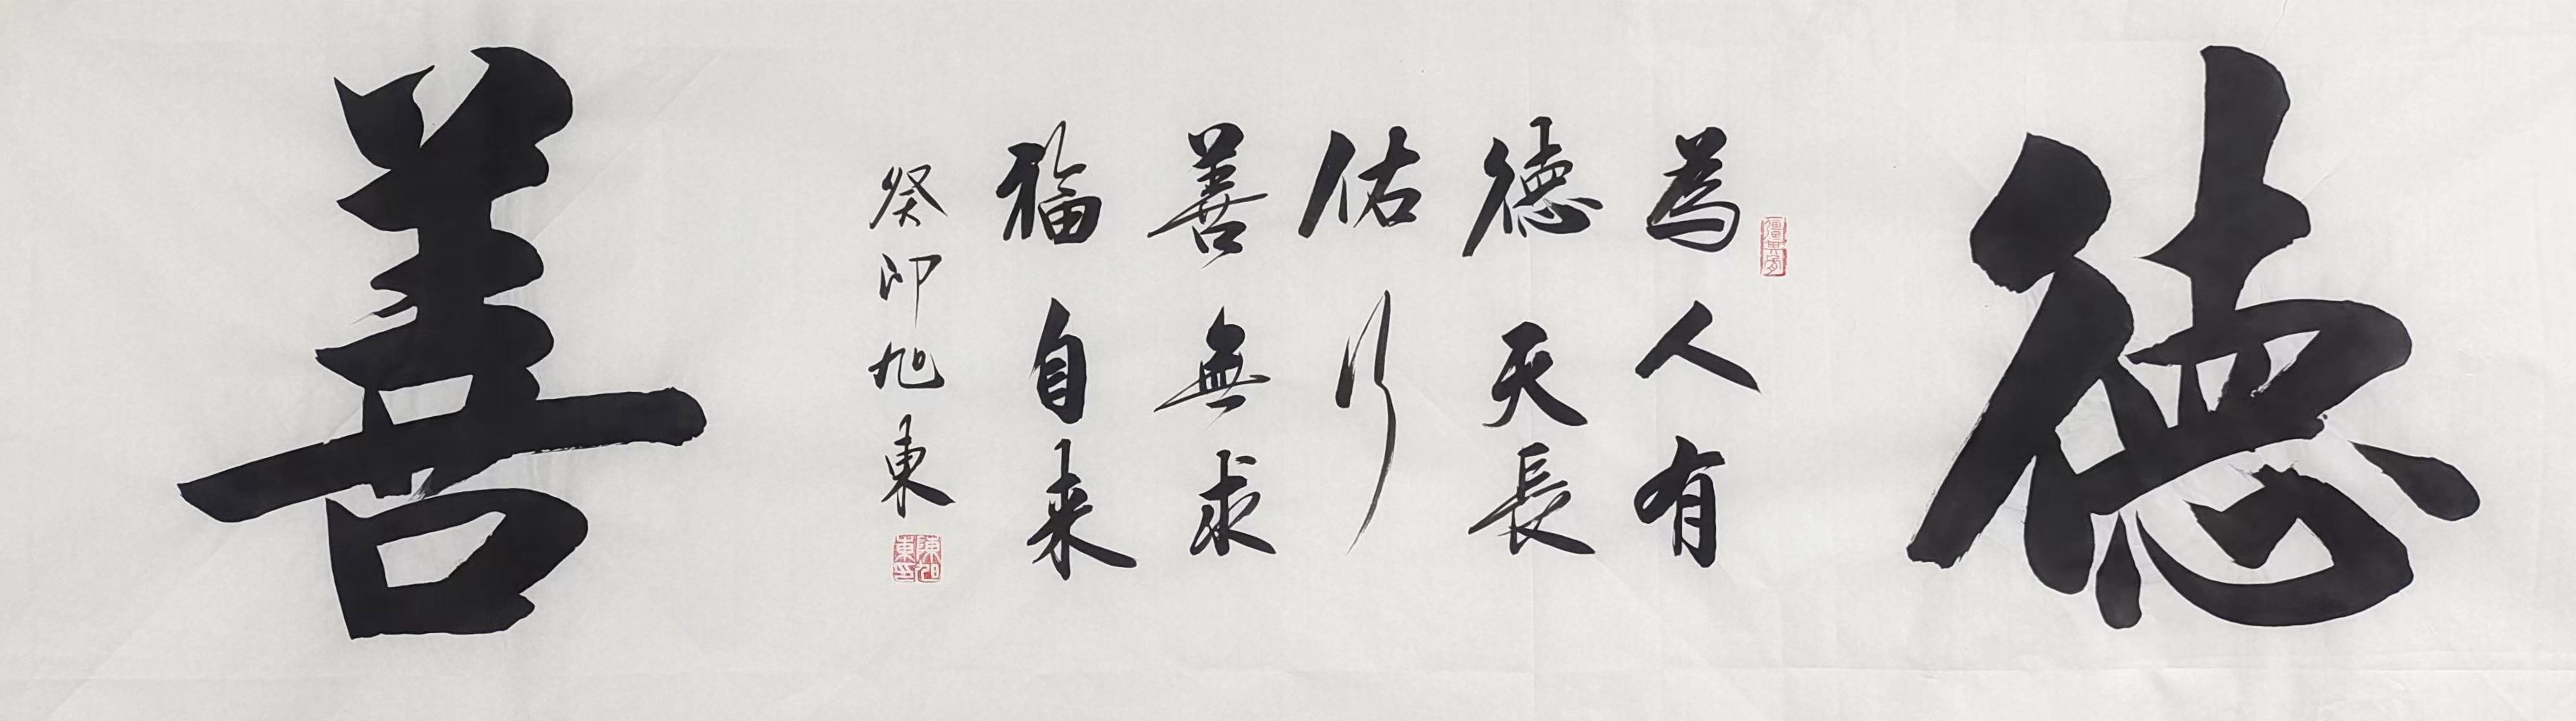 德
為人有
德天長
佑行
善無求
福自来
癸卯旭東
陳旭東印
善